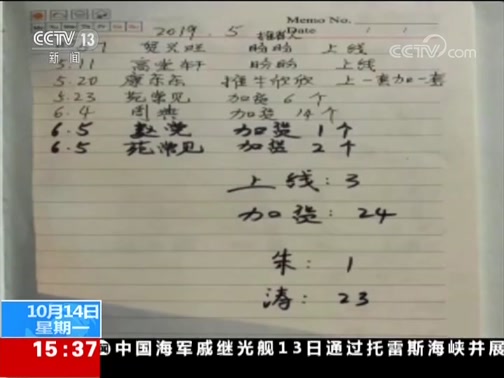 CCTV 13
新闻
CCTV.com
2019. 5
Memo No.
Date / /
推荐人
7 贺兴旺 盼盼 上线
5.11 高堂轩 盼盼 上线
5.20 廉东东 推牛欣欣 上一套加一套
5.23 苑常见 加资 6个
6.4 周 加资 14个
6.5 赵 加资 1个
6.5 苑常见 加资 2个
上线: 3
加资: 24
朱: 1
涛: 23
10月14日
星期一
15:37
中国海军戚继光舰13日通过托雷斯海峡并展